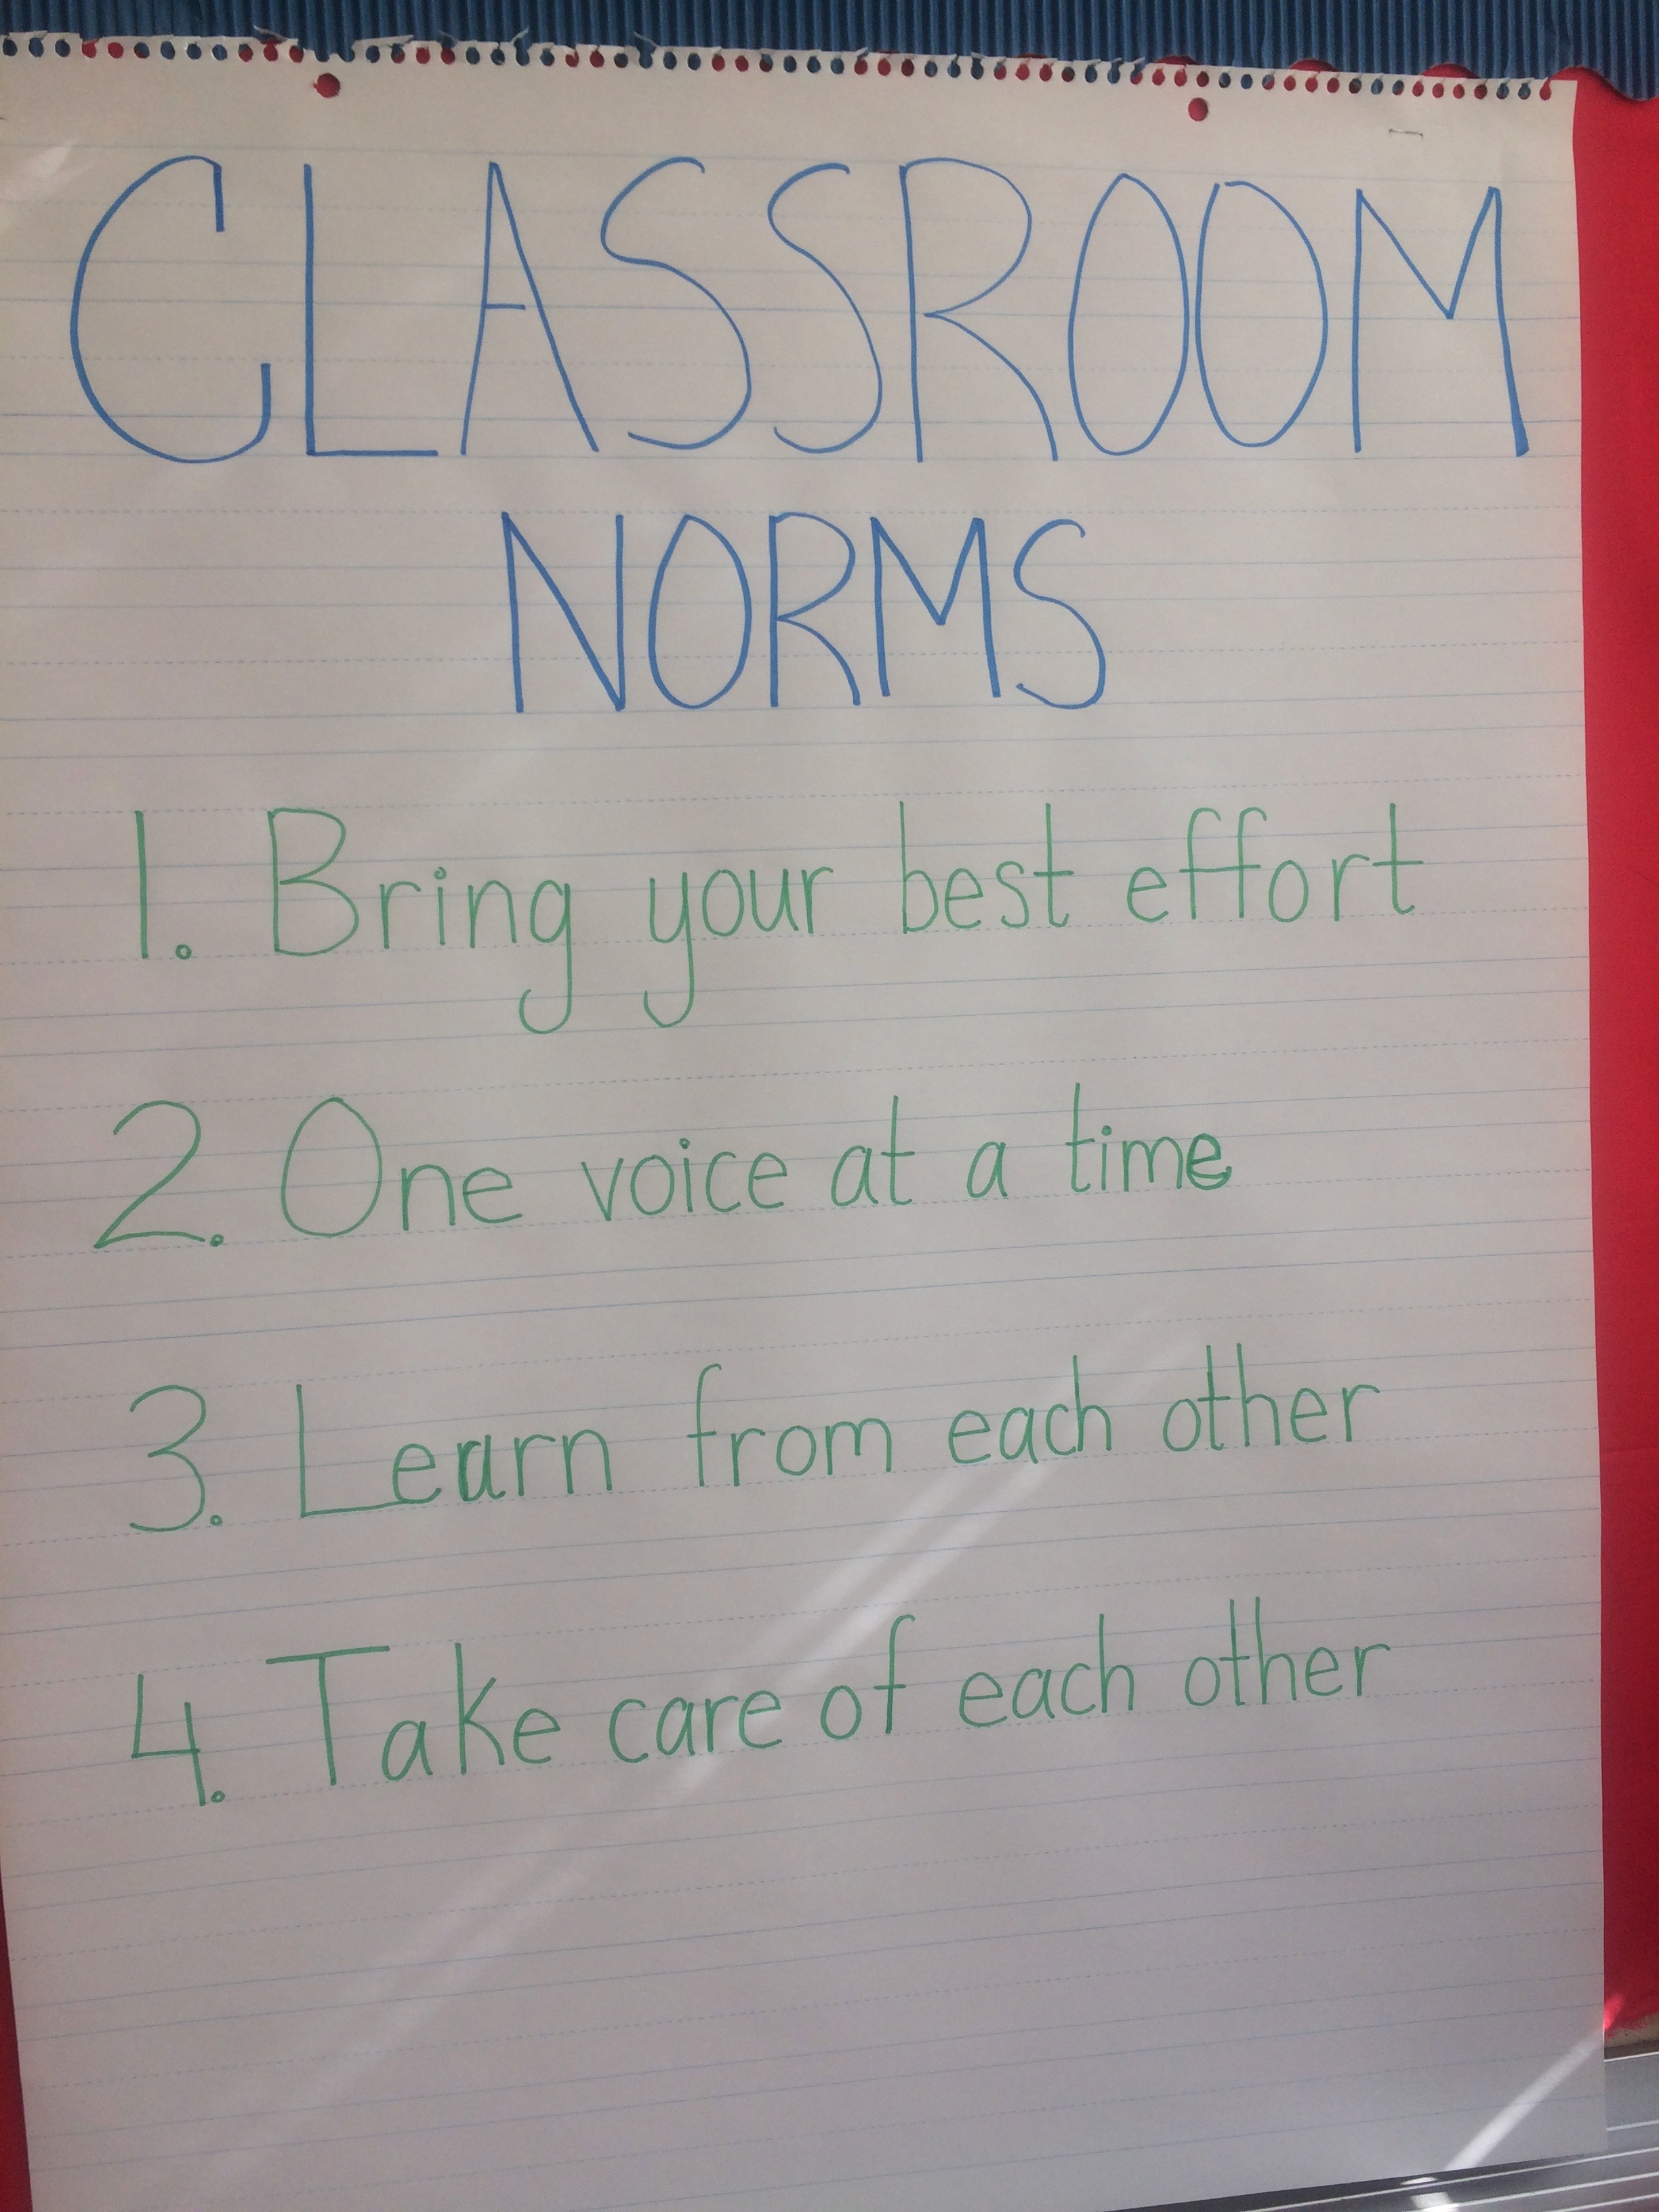 CLASSROOM
NORMS
1. Bring your best effort
2. One voice at a time
3. Learn from each other
4. Take care of each other